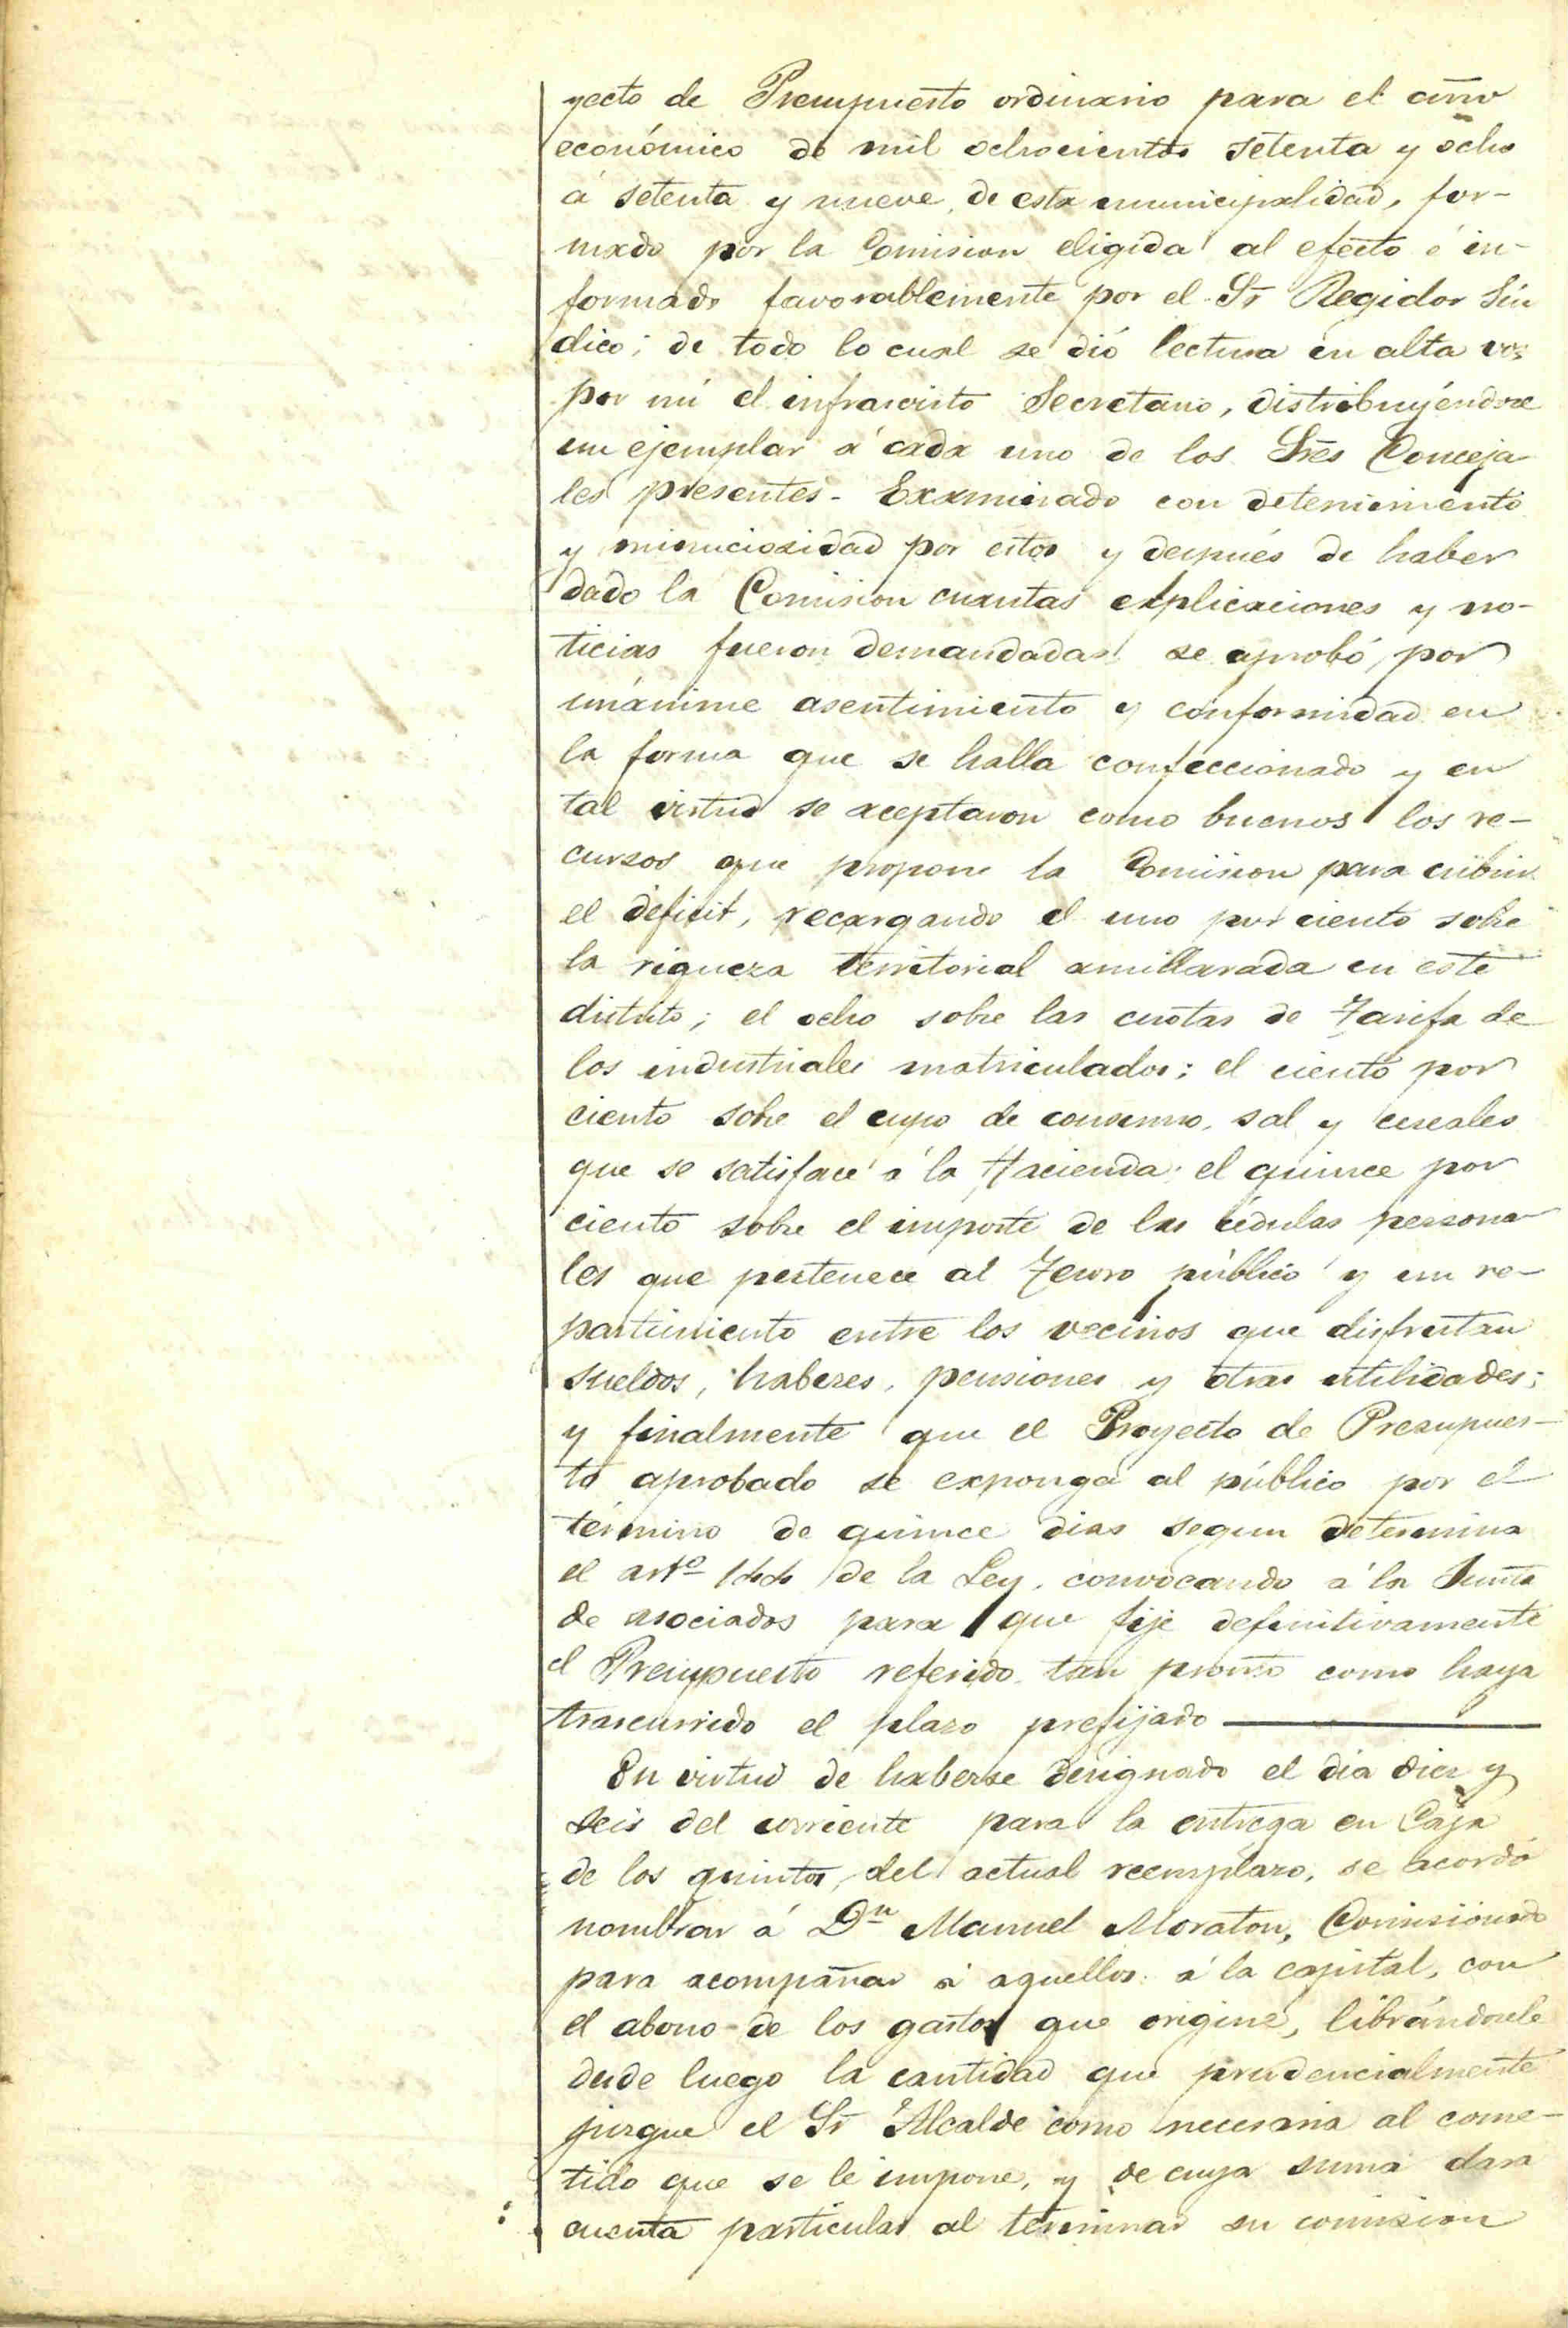 yecto de Presupuesto ordinario para el año
económico de mil ochocientos setenta y ocho
á setenta y nueve, de esta municipalidad, for-
mado por la Comision eligida al efecto é in-
formado favorablemente por el Sr Regidor Sín
dico; de todo lo cual se dió lectura en alta voz
por mí el infrascrito Secretario, distribuyéndose
un ejemplar á cada uno de los Sres Conceja
les presentes. Examinado con detenimiento
y minuciosidad por estos y después de haber
dado la Comision cuantas explicaciones y no-
ticias fueron demandadas se aprobó por
unánime asentimiento y conformidad en
la forma que se halla confeccionado y en
tal virtud se aceptaron como buenos los re-
cursos que propone la Comision para cubrir
el déficit, recargando el uno por ciento sobre
la riqueza territorial amillarada en este
distrito; el ocho sobre las cuotas de Tarifa de
los industriales matriculados; el ciento por
ciento sobre el cupo de consumo, sal y cereales
que se satisface á la Hacienda; el quince por
ciento sobre el importe de las cédulas persona
les que pertenece al Tesoro público y un re-
partimiento entre los vecinos que disfrutan
sueldos, haberes, pensiones y otras utilidades;
y finalmente que el Proyecto de Presupues-
to aprobado se exponga al público por el
término de quince dias segun determina
el arto 144 de la Ley, convocando á la Junta
de asociados para que fije definitivamente
el Presupuesto referido tan pronto como haya
trascurrido el plazo prefijado
En virtud de haberse designado el dia diez y
seis del corriente para la entrega en Caja
de los quintos, del actual reemplazo, se acordó
nombrar á Dn Manuel Moraton, Comisionado
para acompañar á aquellos á la capital, con
el abono de los gastos que origine, librándosele
desde luego la cantidad que prudencialmente
juzgue el Sr Alcalde como necesaria al come-
tido que se le impone, y de cuya suma dara
cuenta particular al terminar su comision